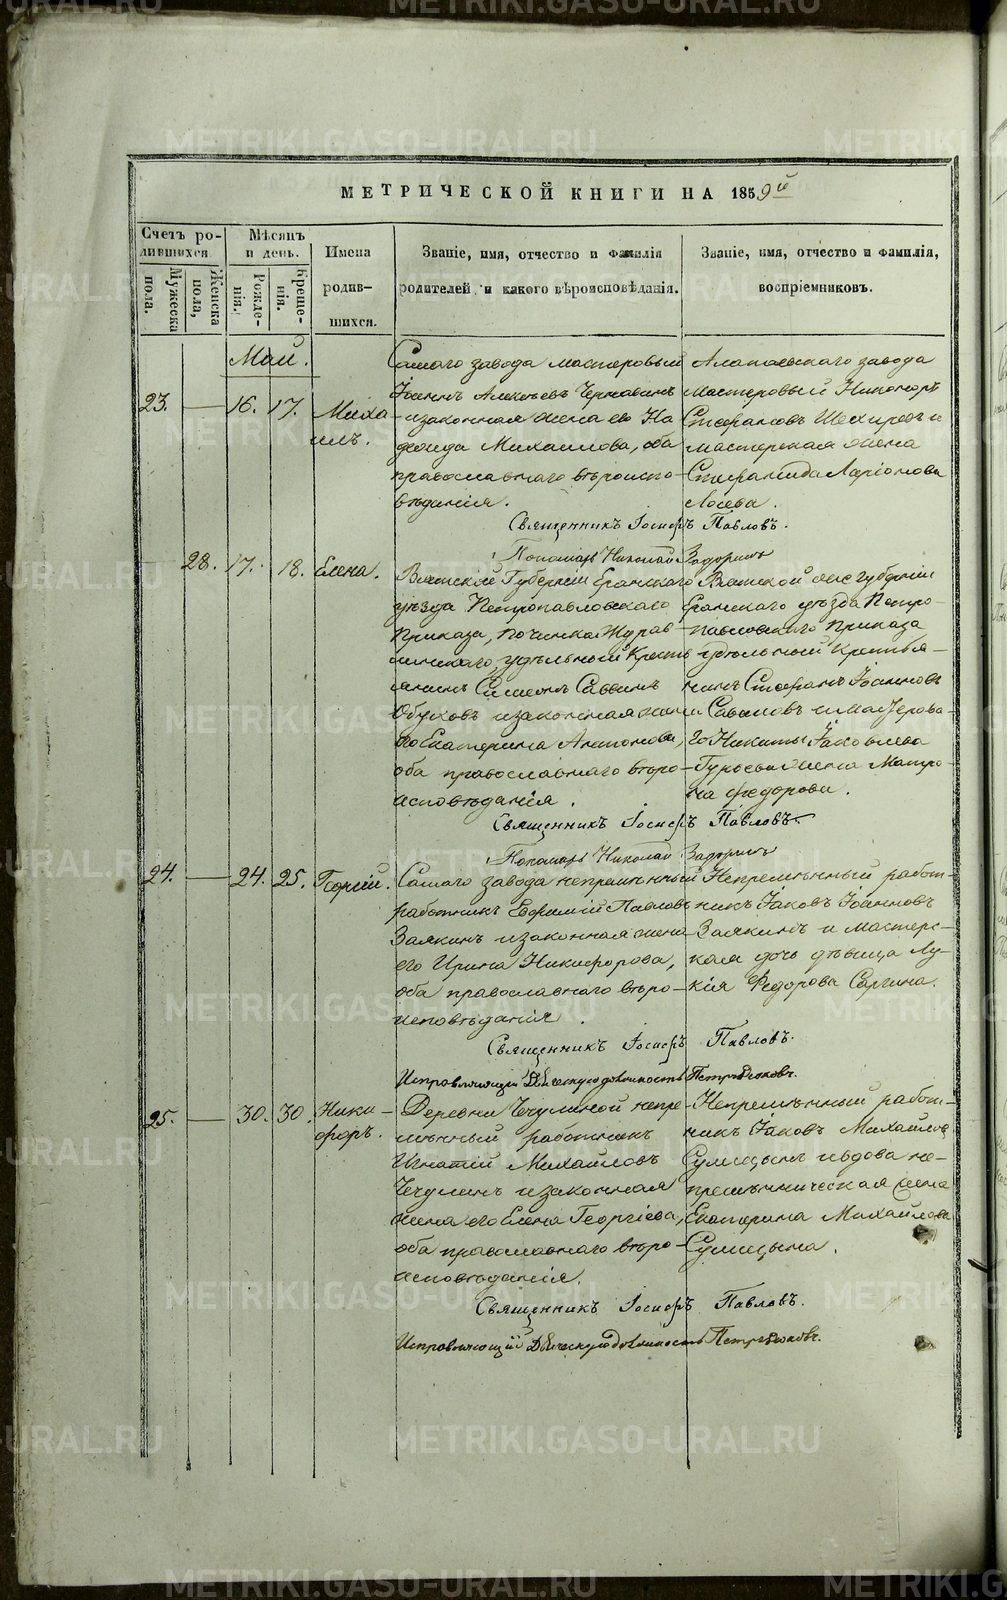 МЕТРИЧЕСКОЙ КНИГИ НА 1859й
Счетъ ро-
дившихся
Мѣсяцъ
и день.
Имена
родив-
шихся.
Званіе, имя, отчество и фамилія
родителей, и какого вѣроисповѣданія.
Званіе, имя, отчество и фамилія,
воспріемниковъ.
Мужеска
пола.
Женска
пола,
Рожде-
нія.
Креще-
нія.
Май.
23. — 16. 17. Миха
илъ.
Самаго завода мастеровый
Іоаннъ Алексѣевъ
и законная жена его На
дежда Михаилова, оба
православнаго вѣроиспо-
вѣданія.
Алапаевскаго завода
мастеровый Никаноръ
Стефановъ и
мастерская жена
Стефанида Ларіонова
Лосева.
Священникъ Іосифъ Павловъ.
Пономарь Николай Задоринъ
— 28. 17. 18. Елена.
Вятской Губерніи Яранскаго
уѣзда Петропавловскаго
Приказа, починка Журав
линскаго, удѣльный Кресть
янинъ Симеонъ Саввинъ
Обуховъ и законная жена
его Екатерина Антонова,
оба православнаго вѣро-
исповѣданія.
Вятской же губерніи
Яранскаго уѣзда Петро-
павловскаго Приказа
удѣльный Крестья-
нинъ Стефанъ Іоанновъ
Савиновъ и мастерова-
го Никиты Іаковлева
Гурьева жена Матро-
на Федорова.
Священникъ Іосифъ Павловъ
Пономарь Николай Задоринъ
24. — 24. 25. Георгій.
Самаго завода непремѣнный
работникъ Евфимій Павловъ
Заякинъ и законная жена
его Ирина Никифорова,
оба православнаго вѣро-
исповѣданія.
Непремѣнный работ-
никъ Іаковъ Іоанновъ
Заякинъ и мастерс-
кая дочь дѣвица Лу-
кія Федорова Саргина.
Священникъ Іосифъ Павловъ.
Исправляющій Дьяческую должность Петръ
25. — 30. 30. Ники-
форъ.
Деревни Чечулиной непре-
мѣнный работникъ
Игнатій Михайловъ
Чечулинъ и законная
жена его Елена Георгіева,
оба православнаго вѣро-
исповѣданія.
Непремѣнный работ-
никъ Іаковъ Михайловъ
Сумицынъ и вдова не-
премѣнническая жена
Екатерина Михайлова
Сумицына.
Священникъ Іосифъ Павловъ.
Исправляющій Дьяческую должность Петръ
METRIKI.GASO-URAL.RU